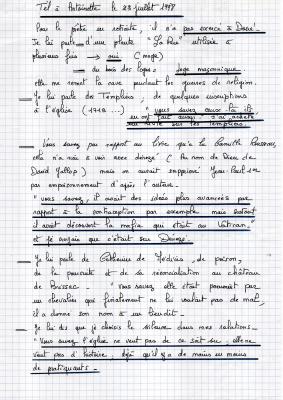 Tel à Antoinette le 23 juillet 1998
Pour le prêtre en retraite, il n'a pas exercé à
Je lui parle d'une plante "La Rue" utilisée à
plusieurs fois → oui (mage)
du bois des loges; loge maçonnique
elle me remet la cave pendant les guerres de religion.
Je lui parle des Templiers, de quelques inscriptions
à l'église (1718 ...) vous savez ceux là ils
en ont fait aussi
sur les templiers.
Vous savez par rapport au livre que la Famille
cela n'a rien à voir avec (Au nom de Dieu de
David Yallop) mais on aurait supprimé Jean-Paul 1er
par empoisonnement d'après l'auteur.
"vous savez, il avait des idées plus avancées par
rapport à la contraception par exemple mais surtout
il avait découvert la mafia qui était au Vatican"
et je croyais que c'était sur
Je lui parle de Catherine de Médicis, de poison,
de la poursuite et de sa réconciliation au château
de "Vous savez elle était poursuivie par
un chevalier qui finalement ne lui voulait pas de mal,
il a donné son nom à un lieudit -
Je lui dis que je choisis le silence dans mes relations -
"Vous savez l'église ne veut pas de ce sujet, elle ne
veut pas d'histoire, déjà qu'il y a de moins en moins
de pratiquants -